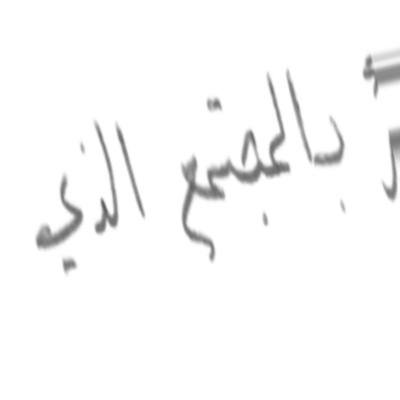 بالمجتمع الذي